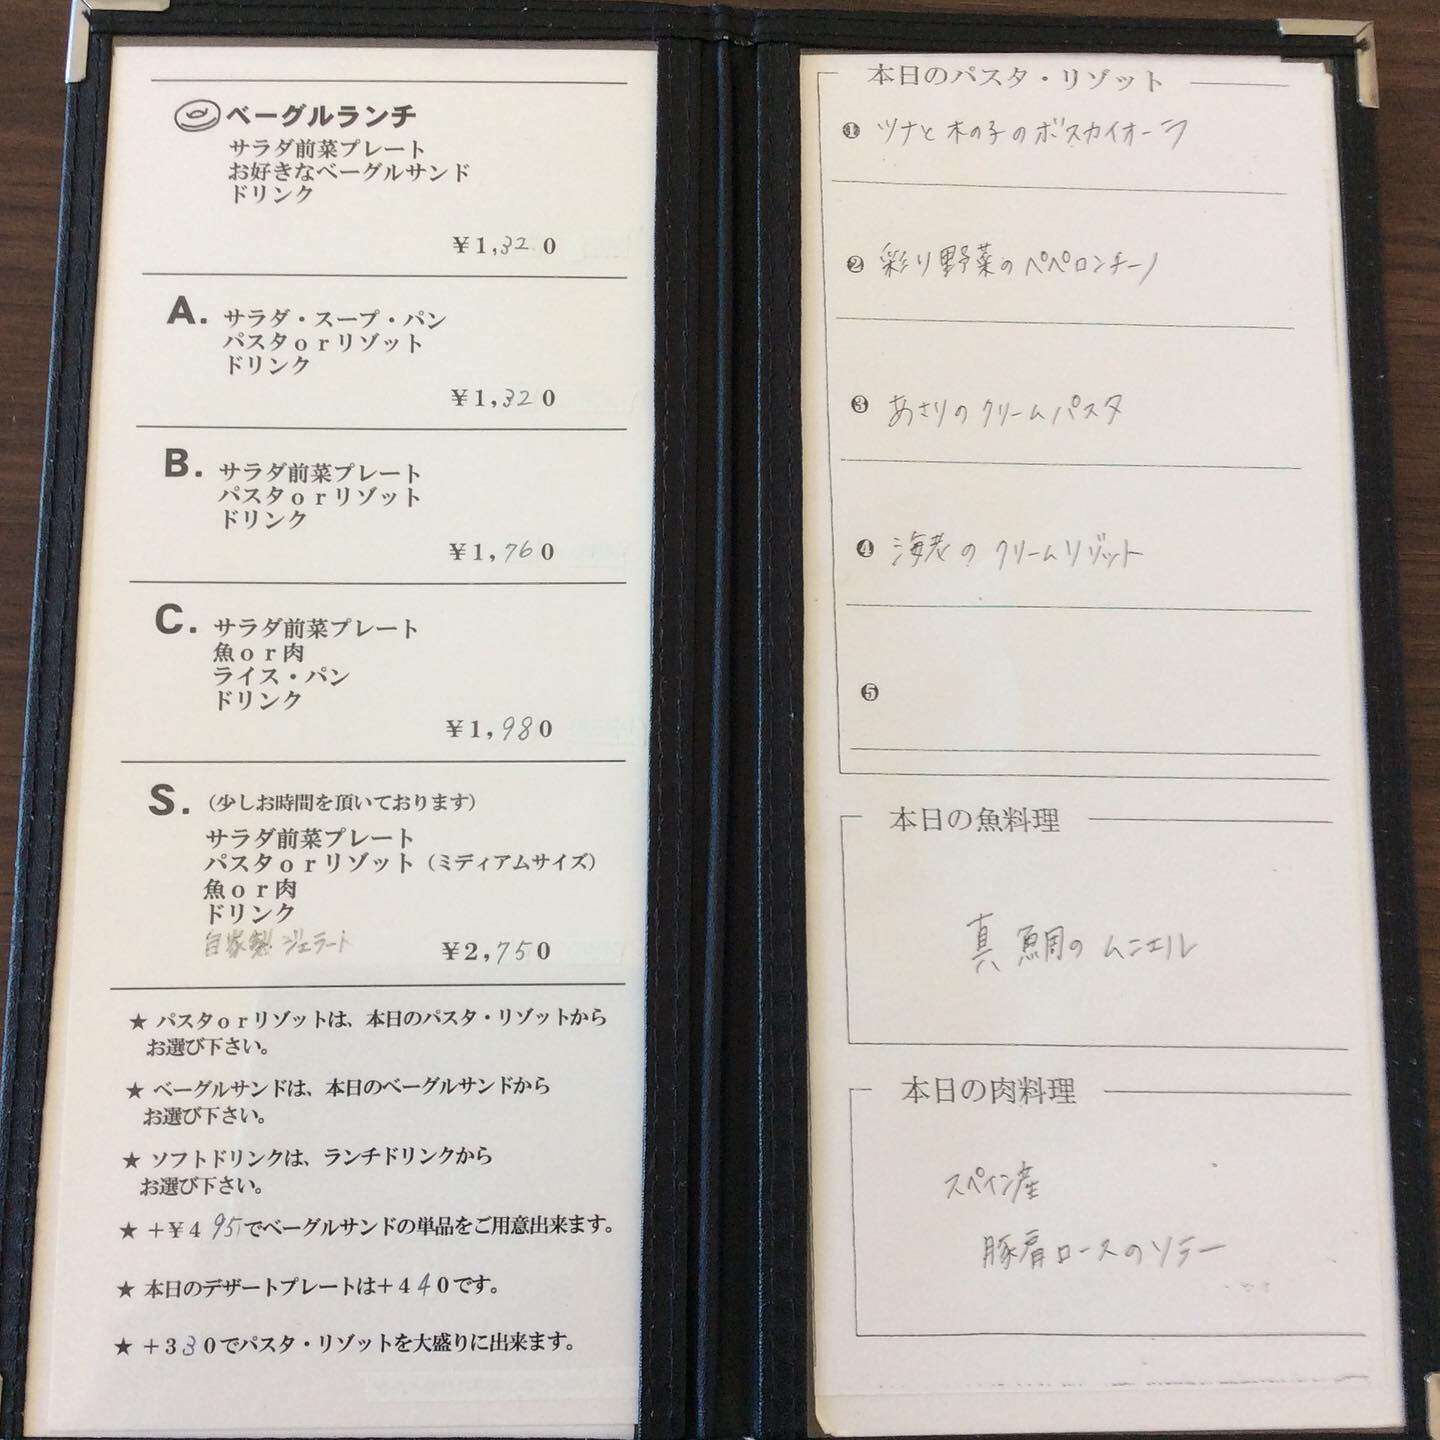 ベーグルランチ
サラダ前菜プレート
お好きなベーグルサンド
ドリンク
¥1,320
A.
サラダ・スープ・パン
パスタorリゾット
ドリンク
¥1,320
B.
サラダ前菜プレート
パスタorリゾット
ドリンク
¥1,760
C.
サラダ前菜プレート
魚or肉
ライス・パン
ドリンク
¥1,980
S.（少しお時間を頂いております）
サラダ前菜プレート
パスタorリゾット（ミディアムサイズ）
魚or肉
ドリンク
自家製ジェラート
¥2,750
★ パスタorリゾットは、本日のパスタ・リゾットから
お選び下さい。
★ ベーグルサンドは、本日のベーグルサンドから
お選び下さい。
★ ソフトドリンクは、ランチドリンクから
お選び下さい。
★ +¥495でベーグルサンドの単品をご用意出来ます。
★ 本日のデザートプレートは+440です。
★ +330でパスタ・リゾットを大盛りに出来ます。
本日のパスタ・リゾット
❶ ツナと木の子のボスカイオーラ
❷ 彩り野菜のペペロンチーノ
❸ あさりのクリームパスタ
❹ 海老のクリームリゾット
❺
本日の魚料理
真鯛のムニエル
本日の肉料理
スペイン産
豚肩ロースのソテー